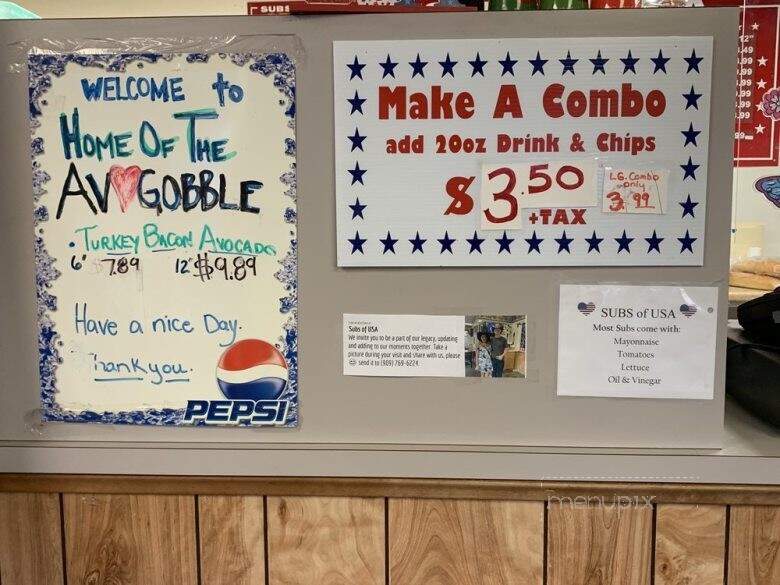 SUBS
WELCOME to
HOME OF THE
AV GOBBLE
• TURKEY BACON AVOCADO
6" 7.89 12" $9.89
Have a nice Day.
Thank you.
PEPSI
Make A Combo
add 20oz Drink & Chips
$3.50 +TAX
LG. Combo
only
3.99
Subs of USA
We invite you to be a part of our legacy, updating
and adding to our moments together. Take a
picture during your visit and share with us, please
send it to (909) 769-6224.
SUBS of USA
Most Subs come with:
Mayonnaise
Tomatoes
Lettuce
Oil & Vinegar
12"
.49
.99
.99
.99
.99
.99
menupix